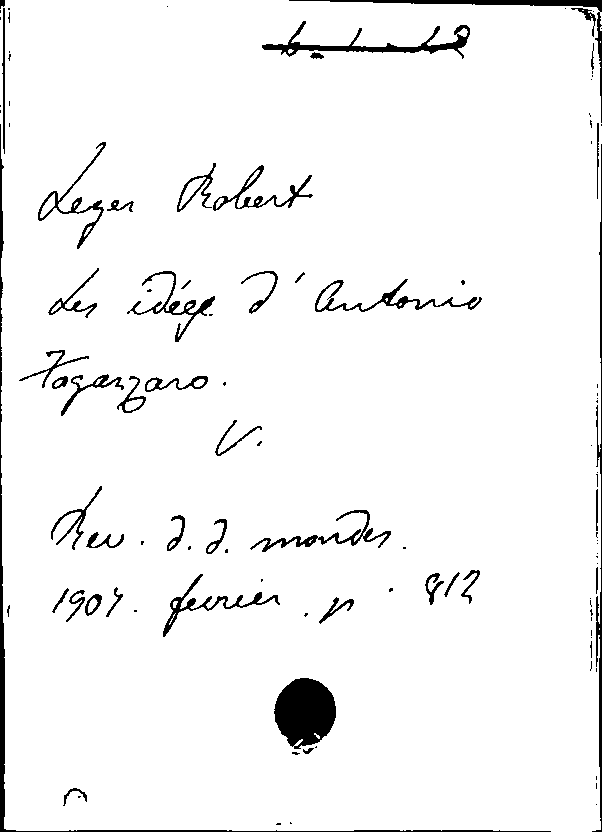 6-1-12
Leger Robert
Les idées d'Antonio
Fogazzaro.
V.
Rev. d. d. mondes.
1907. fevrier. p. 812